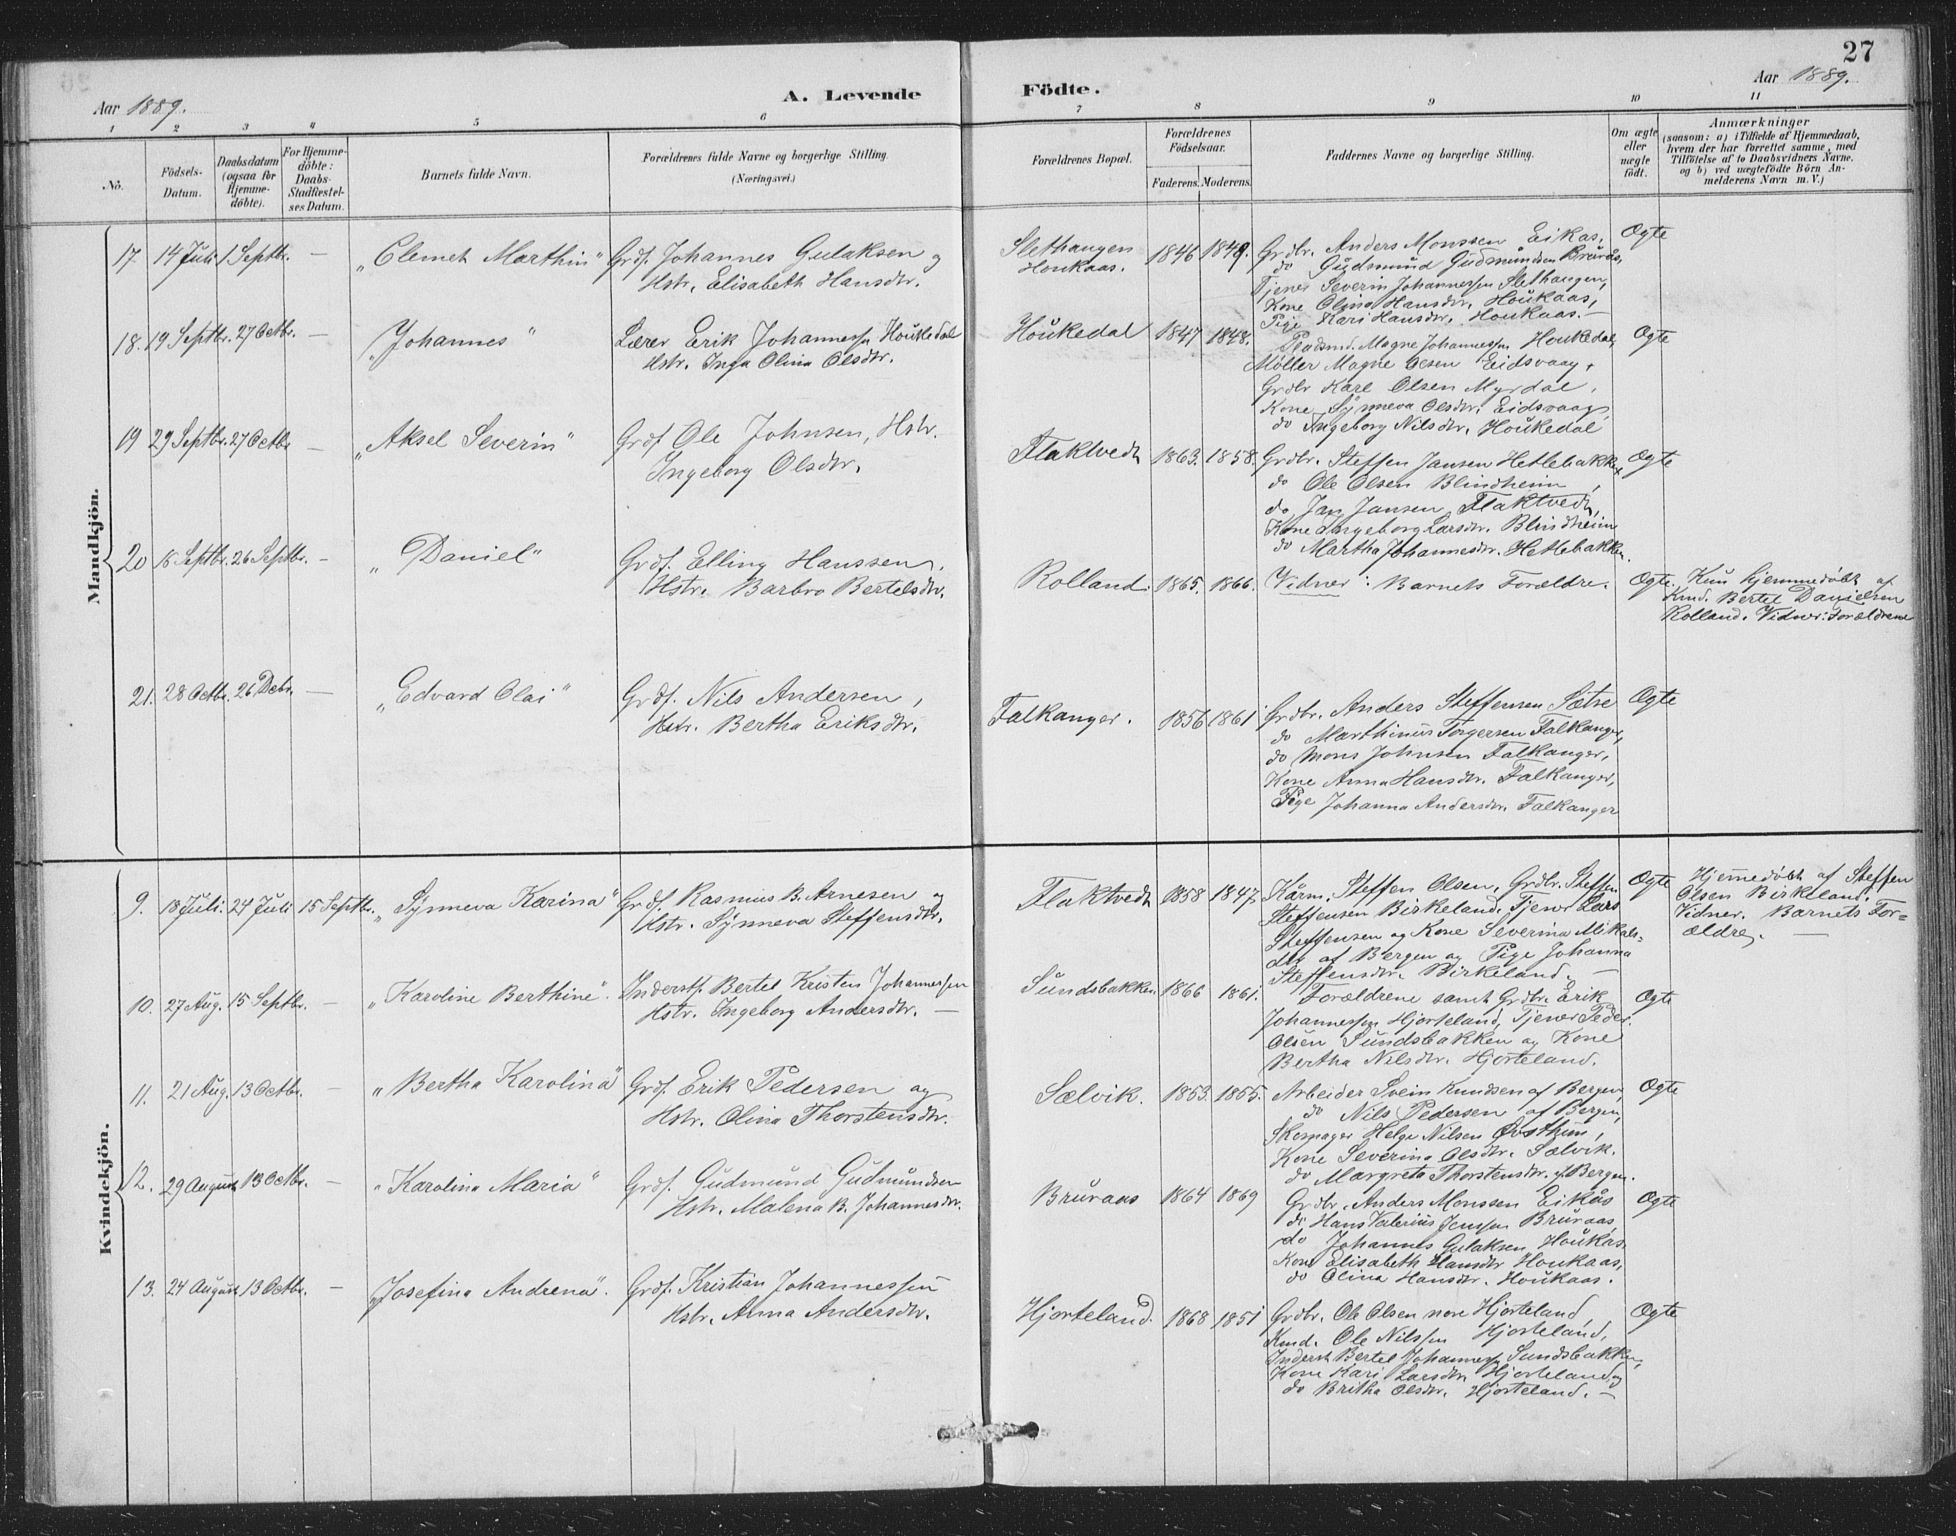 27
Aar 1889.
A. Levende Födte.
Aar 1889.
1 2 3 4 5 6 7 8 9 10 11
No.
Födsels-
Datum.
Daabsdatum
(ogsaa for
Hjemme-
döbte).
For Hjemme-
döbte:
Daabs-
Stadfæstel-
ses Datum.
Barnets fulde Navn.
Forældrenes fulde Navne og borgerlige Stilling.
(Næringsvei.)
Forældrenes Bopæl.
Forældrenes
Födselsaar.
Faderens. Moderens.
Faddernes Navne og borgerlige Stilling.
Om ægte
eller
uægte
födt.
Anmærkninger
(saasom: a) i Tilfælde af Hjemmedaab,
hvem der har forrettet samme, med
Tilföielse af to Daabsvidners Navne.
og b) ved uægtefödte Börn An-
melderens Navn m. V.)
Mandkjön.
17 14 Juli 1 Septbr. — "Clemet Marthin" Grdf. Johannes Gulaksen og
Hstr. Elisabeth Hansdtr.
Slethaugen
Houkaas.
1846 1849.
Grdbr. Anders Monssen Eikas,
do Gudmund Gudmundsen Brurås,
Tjener Severin Johannessen Slethaugen,
Kone Olina Hansdtr. Houkaas,
Pige Kari Hansdtr. Houkaas. —
Ægte
18. 19 Septbr. 27 Octbr. — "Johannes" Lærer Erik Johannessen Houkedal
Hstr. Inga Olina Olsdtr.
Houkedal 1847 1848.
Magne Johannessen Houkedal,
Møller Magne Olsen Eidsvaag,
Grdbr Karl Olsen Myrdal,
Kone Synneva Olsdtr. Eidsvaag,
do Ingeborg Nilsdtr. Houkedal
Ægte
19 29 Septbr. 27 Octbr — "Aksel Severin" Grdf Ole Johnsen, Hstr.
Ingeborg Olsdtr.
Flaktvedt 1863. 1858.
Grdbr. Steffen Jansen Hetlebakken
do Ole Olsen Blindheim,
do Jan Jansen Flaktvedt,
Kone Ingeborg Larsdtr. Blindheim
do Martha Johannesdtr. Hetlebakken.
Ægte
20 18 Septbr. 26 Septbr. — "Daniel" Grdf. Elling Hanssen,
Hstr. Barbro Bertelsdtr.
Rolland. 1865. 1866. Vidner: Barnets Forældre. Ægte.
Kun hjemmedøbt af
Kmd. Bertel Danielsen
Rolland. Vidner: Forældrene
21. 28 Octbr. 26 Debr. — "Edvard Olai" Grdf. Nils Andersen,
Hstr. Bertha Eriksdtr.
Falkanger. 1856 1861
Grdbr. Anders Steffensen Sætre
do Marthinus Torgersen Falkanger,
do Mons Johnsen Falkanger,
Kone Anna Hansdtr. Falkanger,
Pige Johanna Andersdtr. Falkanger
Ægte
Kvindekjön.
9. 18 Juli. 24 Juli 15 Septbr. "Synneva Karina" Grdf. Rasmus B. Arnesen og
Hstr. Synneva Steffensdtr.
Flaktvedt 1858 1847.
Kårm. Steffen Olsen, Grdbr. Steffen
Steffensen Birkeland. Tjener Lars
Steffensen og Kone Severina Mikals-
dtr af Bergen og Pige Johanna
Steffensdtr. Birkeland. —
Ægte
Hjemmedøbt af Steffen
Olsen Birkeland.
Vidner. Barnets For=
ældre. —
10. 27 Aug. 15 Septbr. — "Karoline Berthine". Inderst. Bertel Kristen Johannessen
Hstr. Ingeborg Andersdtr. —
Sundsbakken 1866 1861.
Forældrene samt Grdbr. Erik
Johannessen Hjorteland, Tjener Peder
Olsen Sundsbakken og Kone
Bertha Nilsdtr. Hjorteland.
Ægte
11. 21 Aug. 13 Octbr. — "Bertha Karolina" Grdf. Erik Pedersen og
Hstr. Olina Thorstensdtr.
Sælvik. 1853. 1855.
Arbeider Svein Knudsen af Bergen,
do Nils Pedersen af Bergen,
Skomager Helge Nilsen Øvsthun,
Kone Severina Olsdtr. Sælvik.
do Margreta Thorstensdtr. af Bergen.
Ægte
12. 29 August 13 Octbr. — "Karolina Maria" Grdf. Gudmund Gudmundsen
Hstr. Malena B. Johannesdtr.
Bruraas 1864 1869
Grdbr. Anders Monssen Eikås
do, Hans Valerius Jenssen Bruraas
do Johannes Gulaksen Houkås.
Kone Elisabeth Hansdtr Houkaas,
do Olina Hansdtr. Houkaas.
Ægte
13. 24 August 13 Octbr. — "Josefina Andrena". Grdf. Kristian Johannessen
Hstr. Anna Andersdtr.
Hjorteland. 1868 1851
Grdbr. Ole Olsen nore Hjorteland,
Kmd. Ole Nilssen Hjorteland,
Inderst Bertel Johannessen Sundsbakken,
Kone Kari Larsdtr Hjorteland og
do Britha Olsdtr. Hjorteland. —
Ægte